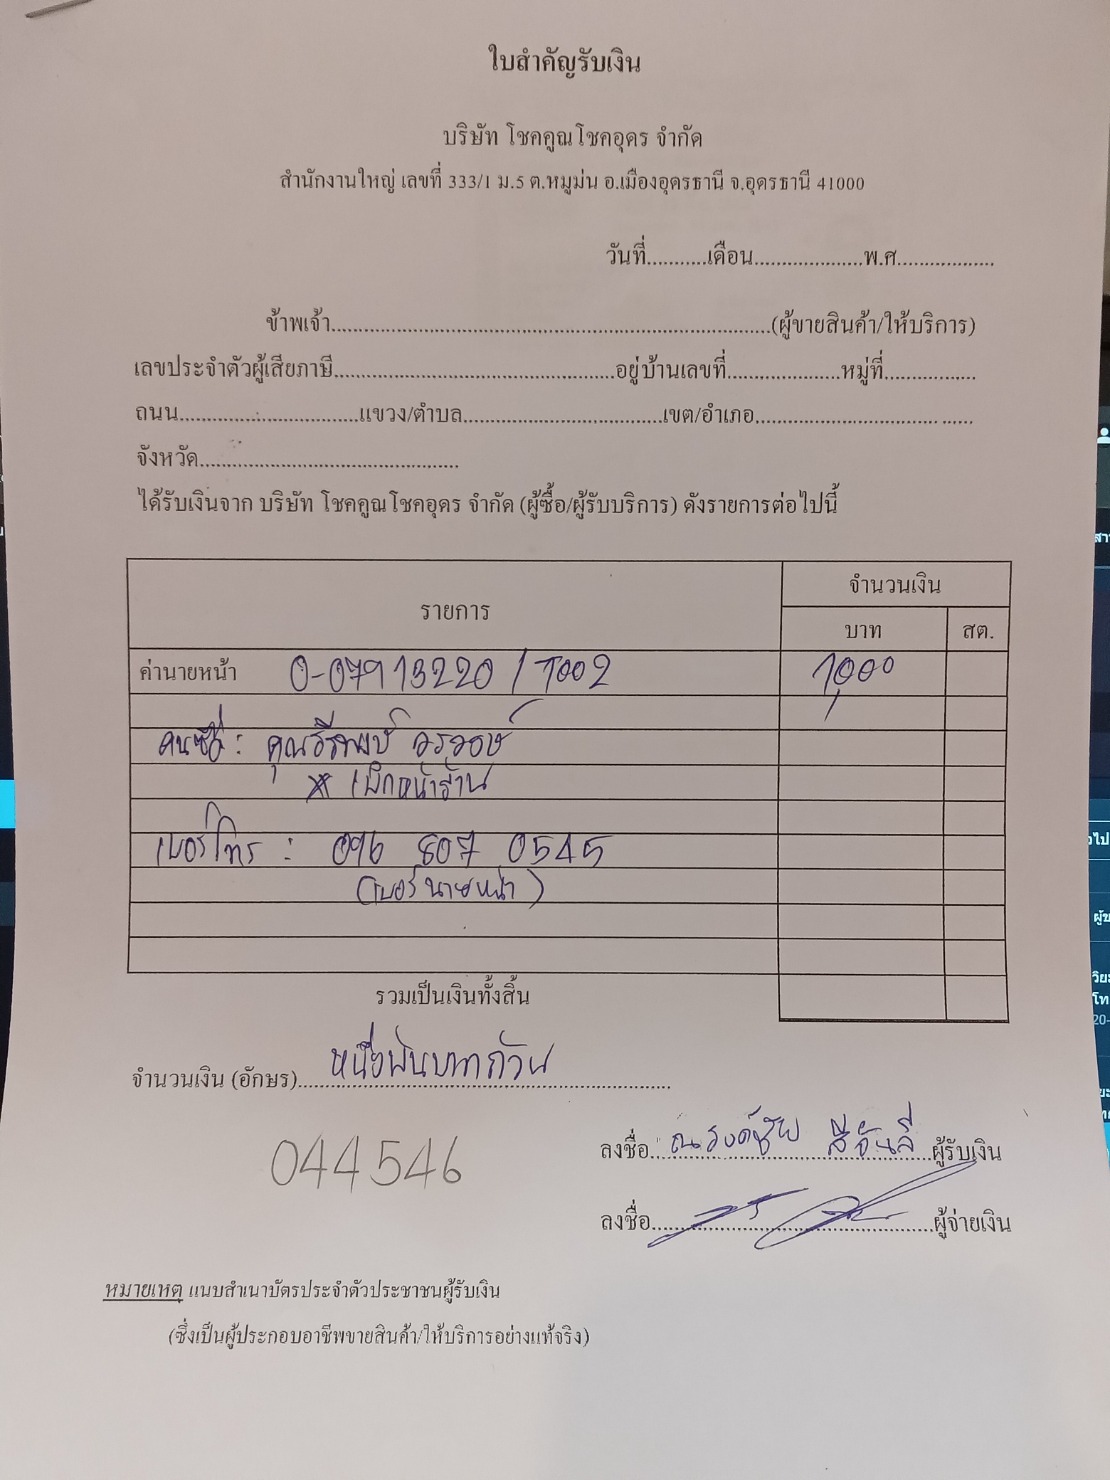 ใบสำคัญรับเงิน
บริษัท โชคคูณโชคอุดร จำกัด
สำนักงานใหญ่ เลขที่ 333/1 ม.5 ต.หมูม่น อ.เมืองอุดรธานี จ.อุดรธานี 41000
วันที่...........เดือน....................พ.ศ..................
ข้าพเจ้า................................................................................(ผู้ขายสินค้า/ให้บริการ)
เลขประจำตัวผู้เสียภาษี...................................................อยู่บ้านเลขที่.....................หมู่ที่.................
ถนน.................................แขวง/ตำบล....................................เขต/อำเภอ........................................
จังหวัด...............................................
ได้รับเงินจาก บริษัท โชคคูณโชคอุดร จำกัด (ผู้ซื้อ/ผู้รับบริการ) ดังรายการต่อไปนี้
รายการ จำนวนเงิน
บาท สต.
ค่านายหน้า 0-07913220 / T002 1,000
คนซื้อ : คุณ
* เบิกหน้าร้าน
เบอร์โทร : 096 807 0545
(เบอร์นายหน้า)
รวมเป็นเงินทั้งสิ้น
จำนวนเงิน (อักษร) หนึ่งพันบาทถ้วน
044546
ลงชื่อ ณรงค์ชัย สีจันลี ผู้รับเงิน
ลงชื่อ ผู้จ่ายเงิน
หมายเหตุ แนบสำเนาบัตรประจำตัวประชาชนผู้รับเงิน
(ซึ่งเป็นผู้ประกอบอาชีพขายสินค้า/ให้บริการอย่างแท้จริง)